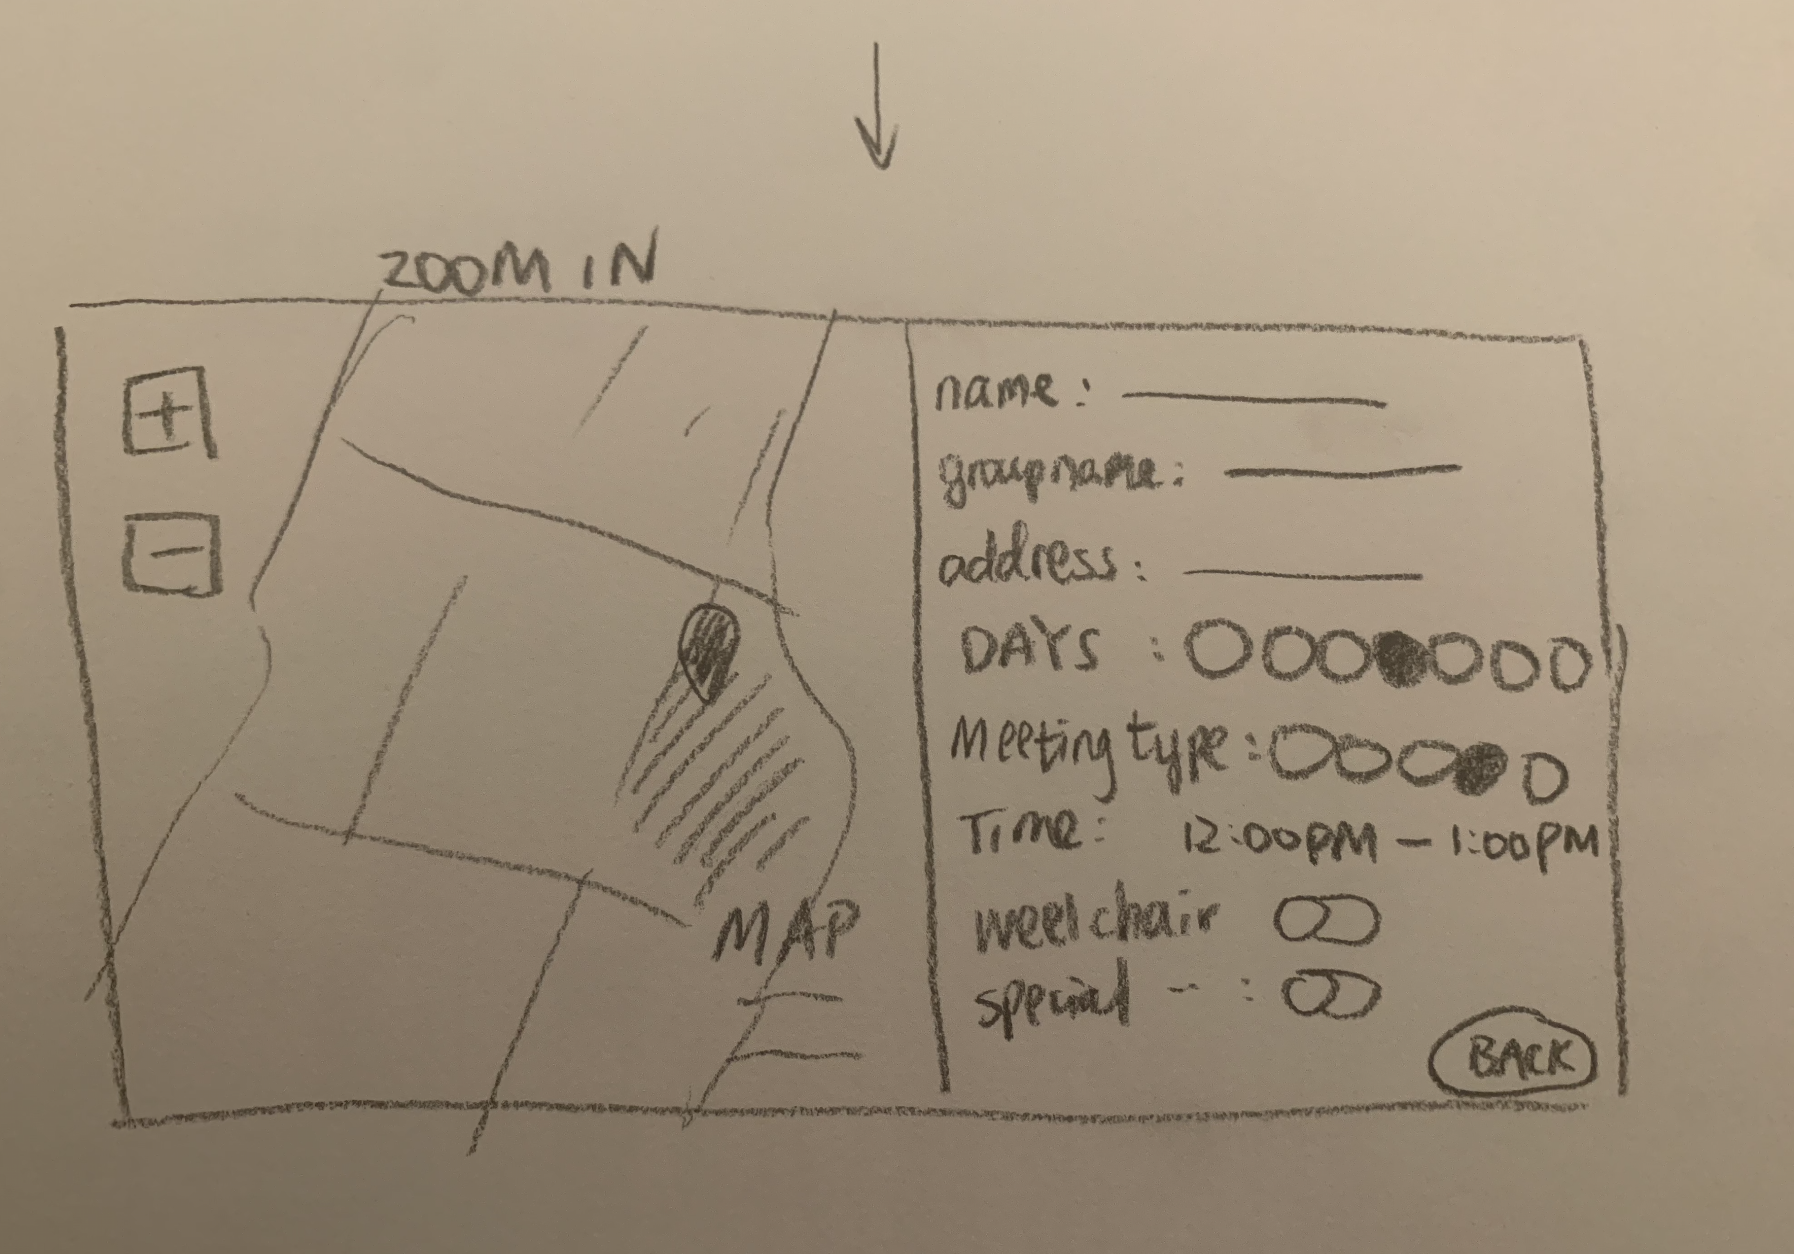 ZOOM IN
+
-
MAP
name:
groupname:
address:
DAYS :
Meeting type:
Time: 12:00PM - 1:00PM
weelchair
special -- :
BACK